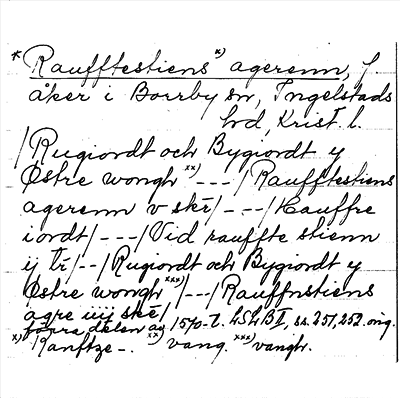 * Raufftestiens x) agerenn, f
åker i Borrby sn, Ingelstads
hd, Krist. l.
/Rugiordt och Bygiordt y
Østre wongh xx) ---/Raufftestiens
agerenn v skr/---/Hauffre
iordt/---/Vid rauffte stienn
ij tr/--/Rugiordt och Bygiordt y
Østre wongh xxx)/---/Rauffnstiens
agre iiij skr/
förra delen av 1570-t. LSLB II, ss. 251, 252. orig.
x) Ranftze-. xx) vang. xxx) vangh.